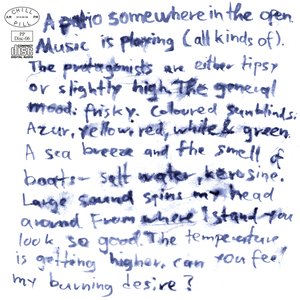 CHILL
PILL
PP
Disc-06
COMPACT
disc
DIGITAL AUDIO
A patio somewhere in the open.
Music is playing (all kinds of).
The protagonists are either tipsy
or slightly high. The general
mood: frisky. Coloured sunblinds:
Azur, yellow, red, white & green.
A sea breeze and the smell of
boats - salt water, kerosine.
Large sound spins my head
around From where I stand you
look so good. The temperature
is getting higher. can you feel
my burning desire?